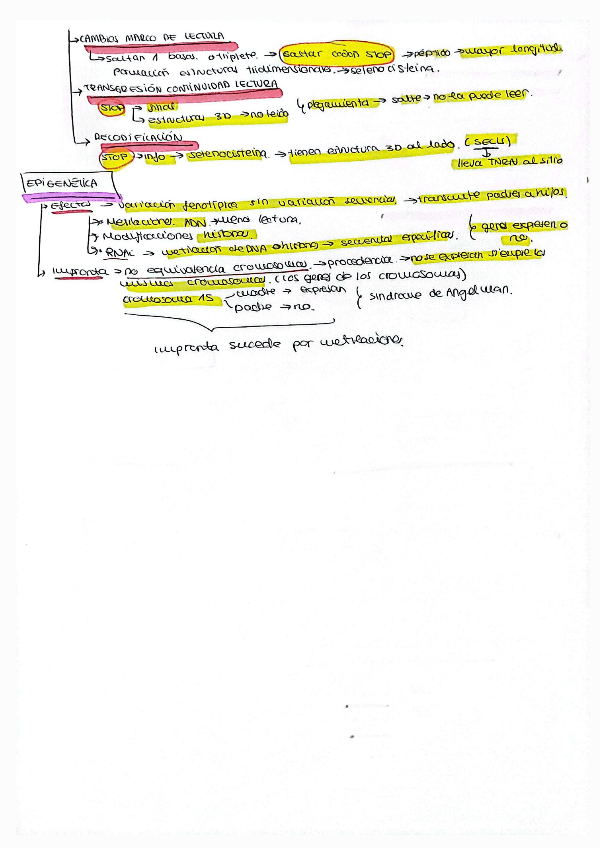 CAMBIOS MARCO DE LECTURA
Saltan 1 base o triplete. → saltar codon STOP → péptido → mayor longitud
Formación estructuras tridimensionales → selenocisteína.
TRANSGRESIÓN CONTINUIDAD LECTURA
STOP → plegamiento → salte → no la puede leer.
→ estructuras 3D → no leido
RECODIFICACIÓN
STOP → info → selenocisteína → tienen estructura 3D al lado. (SECIS)
lleva TNRA al sitio
EPIGENÉTICA
Efectos → variación fenotípica sin variación secuencia → transmite padres a hijos
→ Metilaciones ADN → menor lectura.
→ Modificaciones histonas
→ RNAi → metilación de DNA o histonas → secuencias específicas. genes expresen o no.
→ Impronta → no equivalencia cromosomas → procedencia → no se expresan siempre los
mismos cromosomas. (los genes de los cromosomas)
cromosoma 15 madre → expresan síndrome de Angelman.
padre → no.
Impronta sucede por metilaciones.